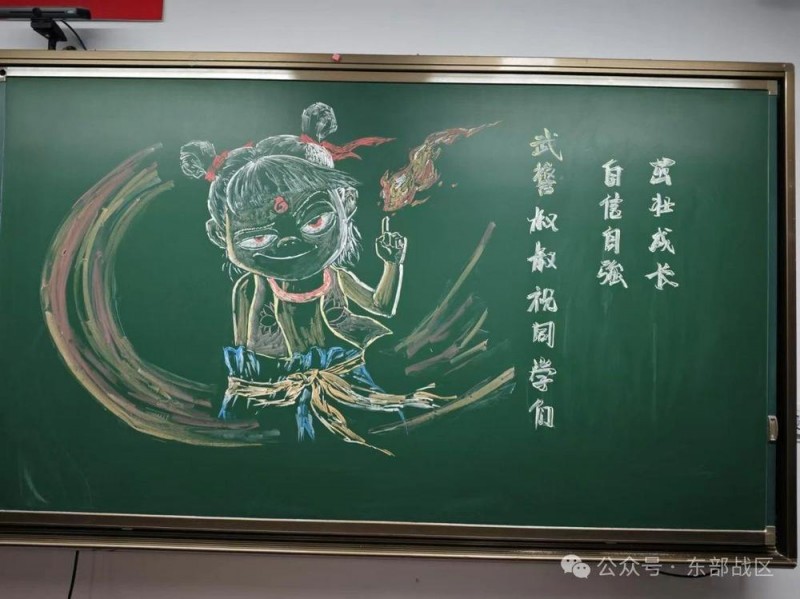 武警叔叔祝同学们
自信自强
茁壮成长
公众号 · 东部战区